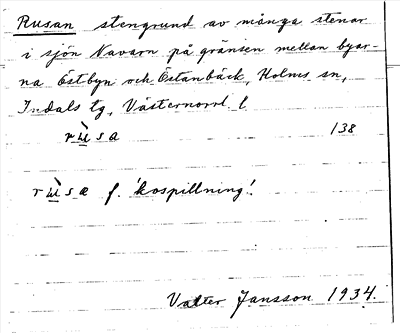 Rusan stengrund av många stenar
i sjön Navarn på gränsen mellan byar-
na Östbyn och Östanbäck, Holms sn,
Indals tg, Västernorrl. l
rùsa 138
rùsæ f. 'kospillning'.
Valter Jansson 1934.